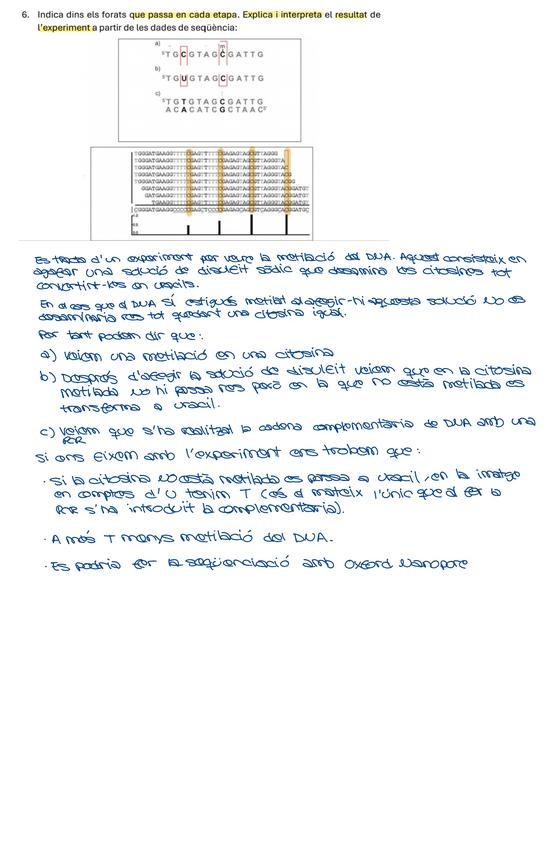 6. Indica dins els forats que passa en cada etapa. Explica i interpreta el resultat de
l'experiment a partir de les dades de seqüència:
a)
m
5'TGCGTAGCGATTG
b)
5'TGUGTAGCGATTG
c)
5'TGTGTAGCGATTG
ACACATCGCTAAC5'
Es tracta d'un experiment per veure la metilació del DNA. Aquest consisteix en
agregar una solució de disulfit sòdic que desamina les citosines tot
convertint-les en uracils.
En el cas que el DNA sí estigués metilat al afegir-hi aquesta solució no es
desaminaria res tot quedant una citosina igual.
Per tant podem dir que:
a) Veiem una metilació en una citosina
b) Després d'afegir la solució de disulfit veiem que en la citosina
metilada no hi passa res però en la que no està metilada es
transforma a uracil.
c) Veiem que s'ha realitzat la cadena complementària de DNA amb una
PCR
Si ens fixem amb l'experiment ens trobem que:
· Si la citosina no està metilada es passa a uracil, en la imatge
en comptes d'U tenim T (és el mateix l'únic que al fer la
PCR s'ha introduït la complementària).
· A més T menys metilació del DNA.
· Es podria fer la seqüenciació amb Oxford Nanopore